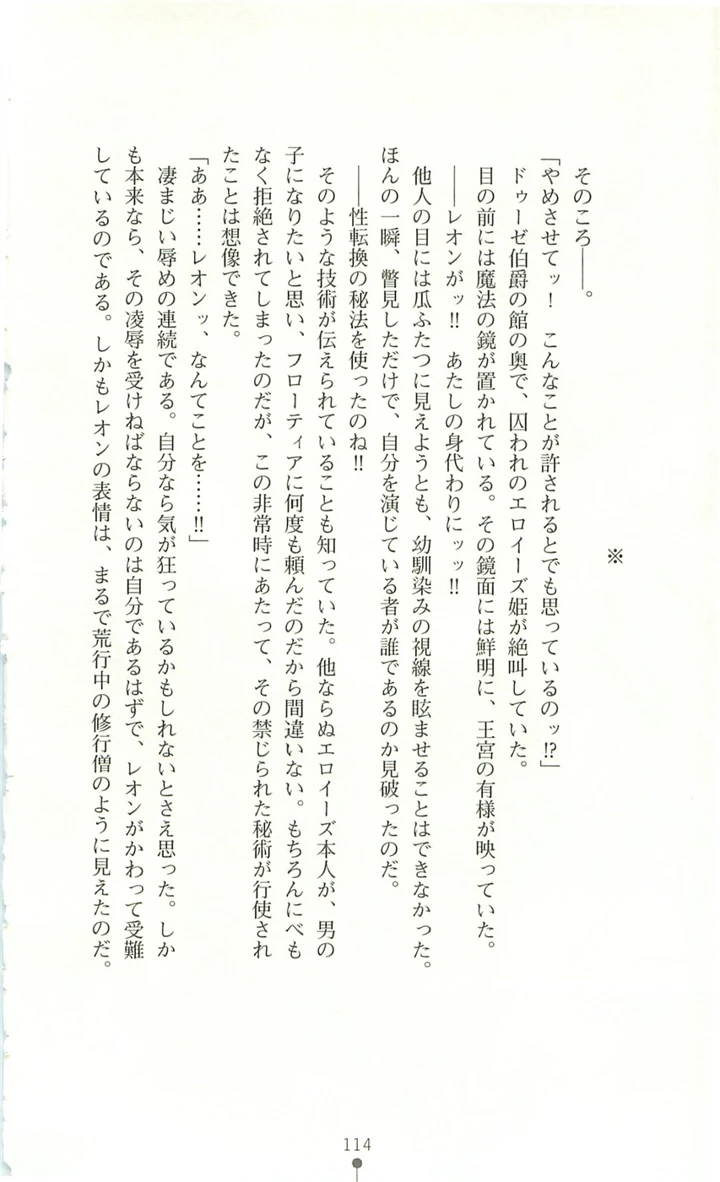 ※
そのころ――。
「やめさせてッ！　こんなことが許されるとでも思っているのッ⁉」
ドゥーゼ伯爵の館の奥で、囚われのエロイーズ姫が絶叫していた。
目の前には魔法の鏡が置かれている。その鏡面には鮮明に、王宮の有様が映っていた。
――レオンがッ‼　あたしの身代わりにッッ‼
他人の目には瓜ふたつに見えようとも、幼馴染みの視線を眩ませることはできなかった。
ほんの一瞬、瞥見しただけで、自分を演じている者が誰であるのか見破ったのだ。
――性転換の秘法を使ったのね‼
そのような技術が伝えられていることも知っていた。他ならぬエロイーズ本人が、男の
子になりたいと思い、フローティアに何度も頼んだのだから間違いない。もちろんにべも
なく拒絶されてしまったのだが、この非常時にあたって、その禁じられた秘術が行使され
たことは想像できた。
「ああ……レオンッ、なんてことを……‼」
凄まじい辱めの連続である。自分なら気が狂っているかもしれないとさえ思った。しか
も本来なら、その凌辱を受けねばならないのは自分であるはずで、レオンがかわって受難
しているのである。しかもレオンの表情は、まるで荒行中の修行僧のように見えたのだ。
114